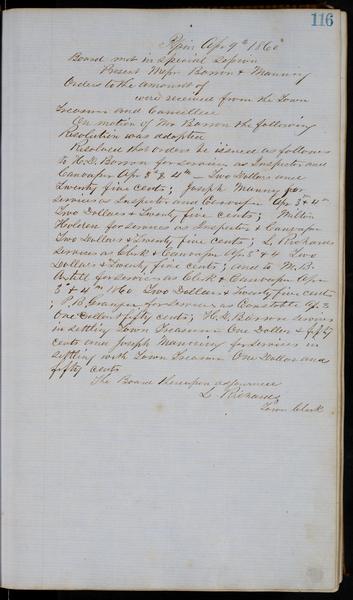 116
Pepin Apr 9th 1860
Board met in special Session
Present Messrs Barron & Manning
Orders to the amount of
were received from the Town
Treasurer and Cancelled
On motion of Mr Barron the following
Resolution was adopted
Resolved that orders be issued as follows
to H. D. Barron for services as Inspector and
Canvasser Apr 3d & 4th — Two Dollars and
Twenty five cents; Joseph Manning for
services as Inspector and Canvasser Apr 3d & 4th
Two Dollars & Twenty five cents; Milton
Holden for services as Inspector & Canvasser
Two Dollars & Twenty five cents; L. Richards
services as Clerk & Canvasser Apr 3d & 4 Two
Dollars & Twenty five cents; and to M. B.
for services as Clerk & Canvasser Apr
3d & 4th 1860 Two Dollars & Twenty five cents
; P. B. Granger for Services as Constable Apr 3
One Dollar & fifty cents; H. D. Barron services
in settling Town Treasurer One Dollar & fifty
cents and Joseph Manning for services in
settling with Town Treasurer One Dollar and
fifty cents
The Board thereupon adjourned
L. Richards
Town Clerk